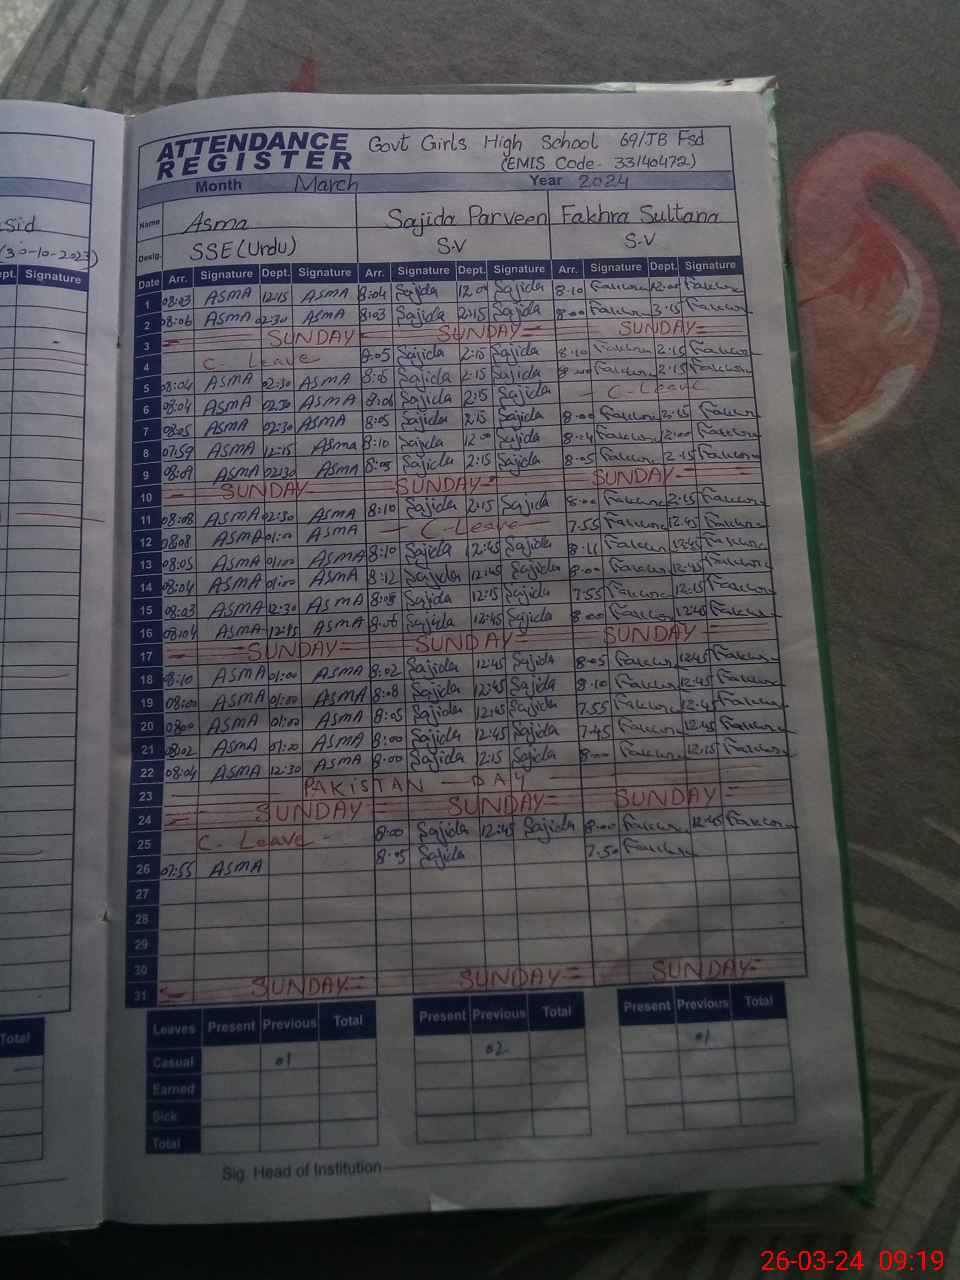 ATTENDANCE REGISTER Govt Girls High School 69/JB Fsd
(EMIS Code- 33140472)
Month March Year 2024
Sid
(30-10-2023)
ept. Signature
Name Asma Sajida Parveen Fakhra Sultana
Desig. SSE(Urdu) S.V S.V
Date Arr. Signature Dept. Signature Arr. Signature Dept. Signature Arr. Signature Dept. Signature
1 08:03 ASMA 12:15 ASMA 8:04 Sajida 12:00 Sajida 8:10 12:00
2 08:06 ASMA 02:30 ASMA 8:03 Sajida 2:15 Sajida 8:00 2:15
3 SUNDAY SUNDAY SUNDAY
4 C. Leave 8:05 Sajida 2:15 Sajida 8:10 2:15
5 08:04 ASMA 02:30 ASMA 8:05 Sajida 2:15 Sajida 2:15
6 08:04 ASMA 02:30 ASMA 8:06 Sajida 2:15 Sajida C-Leave
7 08:05 ASMA 02:30 ASMA 8:05 Sajida 2:15 Sajida 8:00 2:15
8 07:59 ASMA 12:15 ASMA 8:10 Sajida 12:00 Sajida 12:00
9 08:09 ASMA 02:30 ASMA 8:05 Sajida 2:15 Sajida 8:05 2:15
10 SUNDAY SUNDAY SUNDAY
11 08:08 ASMA 02:30 ASMA 8:10 Sajida 2:15 Sajida 8:00 2:15
12 08:08 ASMA 01:00 ASMA C-Leave 7:55 12:45
13 08:05 ASMA 01:00 ASMA 8:10 Sajida 12:45 Sajida 8:11 12:45
14 08:04 ASMA 01:00 ASMA 8:12 Sajida 12:45 Sajida 8:00 12:45
15 08:03 ASMA 12:30 ASMA 8:08 Sajida 12:15 Sajida 7:55 12:15
16 08:04 ASMA 12:45 ASMA 8:06 Sajida 12:45 Sajida 8:00 12:45
17 SUNDAY SUNDAY SUNDAY
18 08:10 ASMA 01:00 ASMA 8:02 Sajida 12:45 Sajida 8:05 12:45
19 08:00 ASMA 01:00 ASMA 8:08 Sajida 12:45 Sajida 8:10 12:45
20 08:00 ASMA 01:00 ASMA 8:05 Sajida 12:45 Sajida 7:55 12:45
21 08:02 ASMA 01:00 ASMA 8:00 Sajida 12:45 Sajida 7:45 12:45
22 08:04 ASMA 12:30 ASMA 8:00 Sajida 12:15 Sajida 8:00 12:15
23 PAKISTAN DAY
24 SUNDAY SUNDAY SUNDAY
25 C. Leave 8:00 Sajida 12:45 Sajida 8:00 12:45
26 07:55 ASMA 8:05 Sajida 7:50
27
28
29
30
31 SUNDAY SUNDAY SUNDAY
Leaves Present Previous Total Present Previous Total Present Previous Total
Casual 01 02 01
Earned
Sick
Total
Total
Sig. Head of Institution
26-03-24 09:19